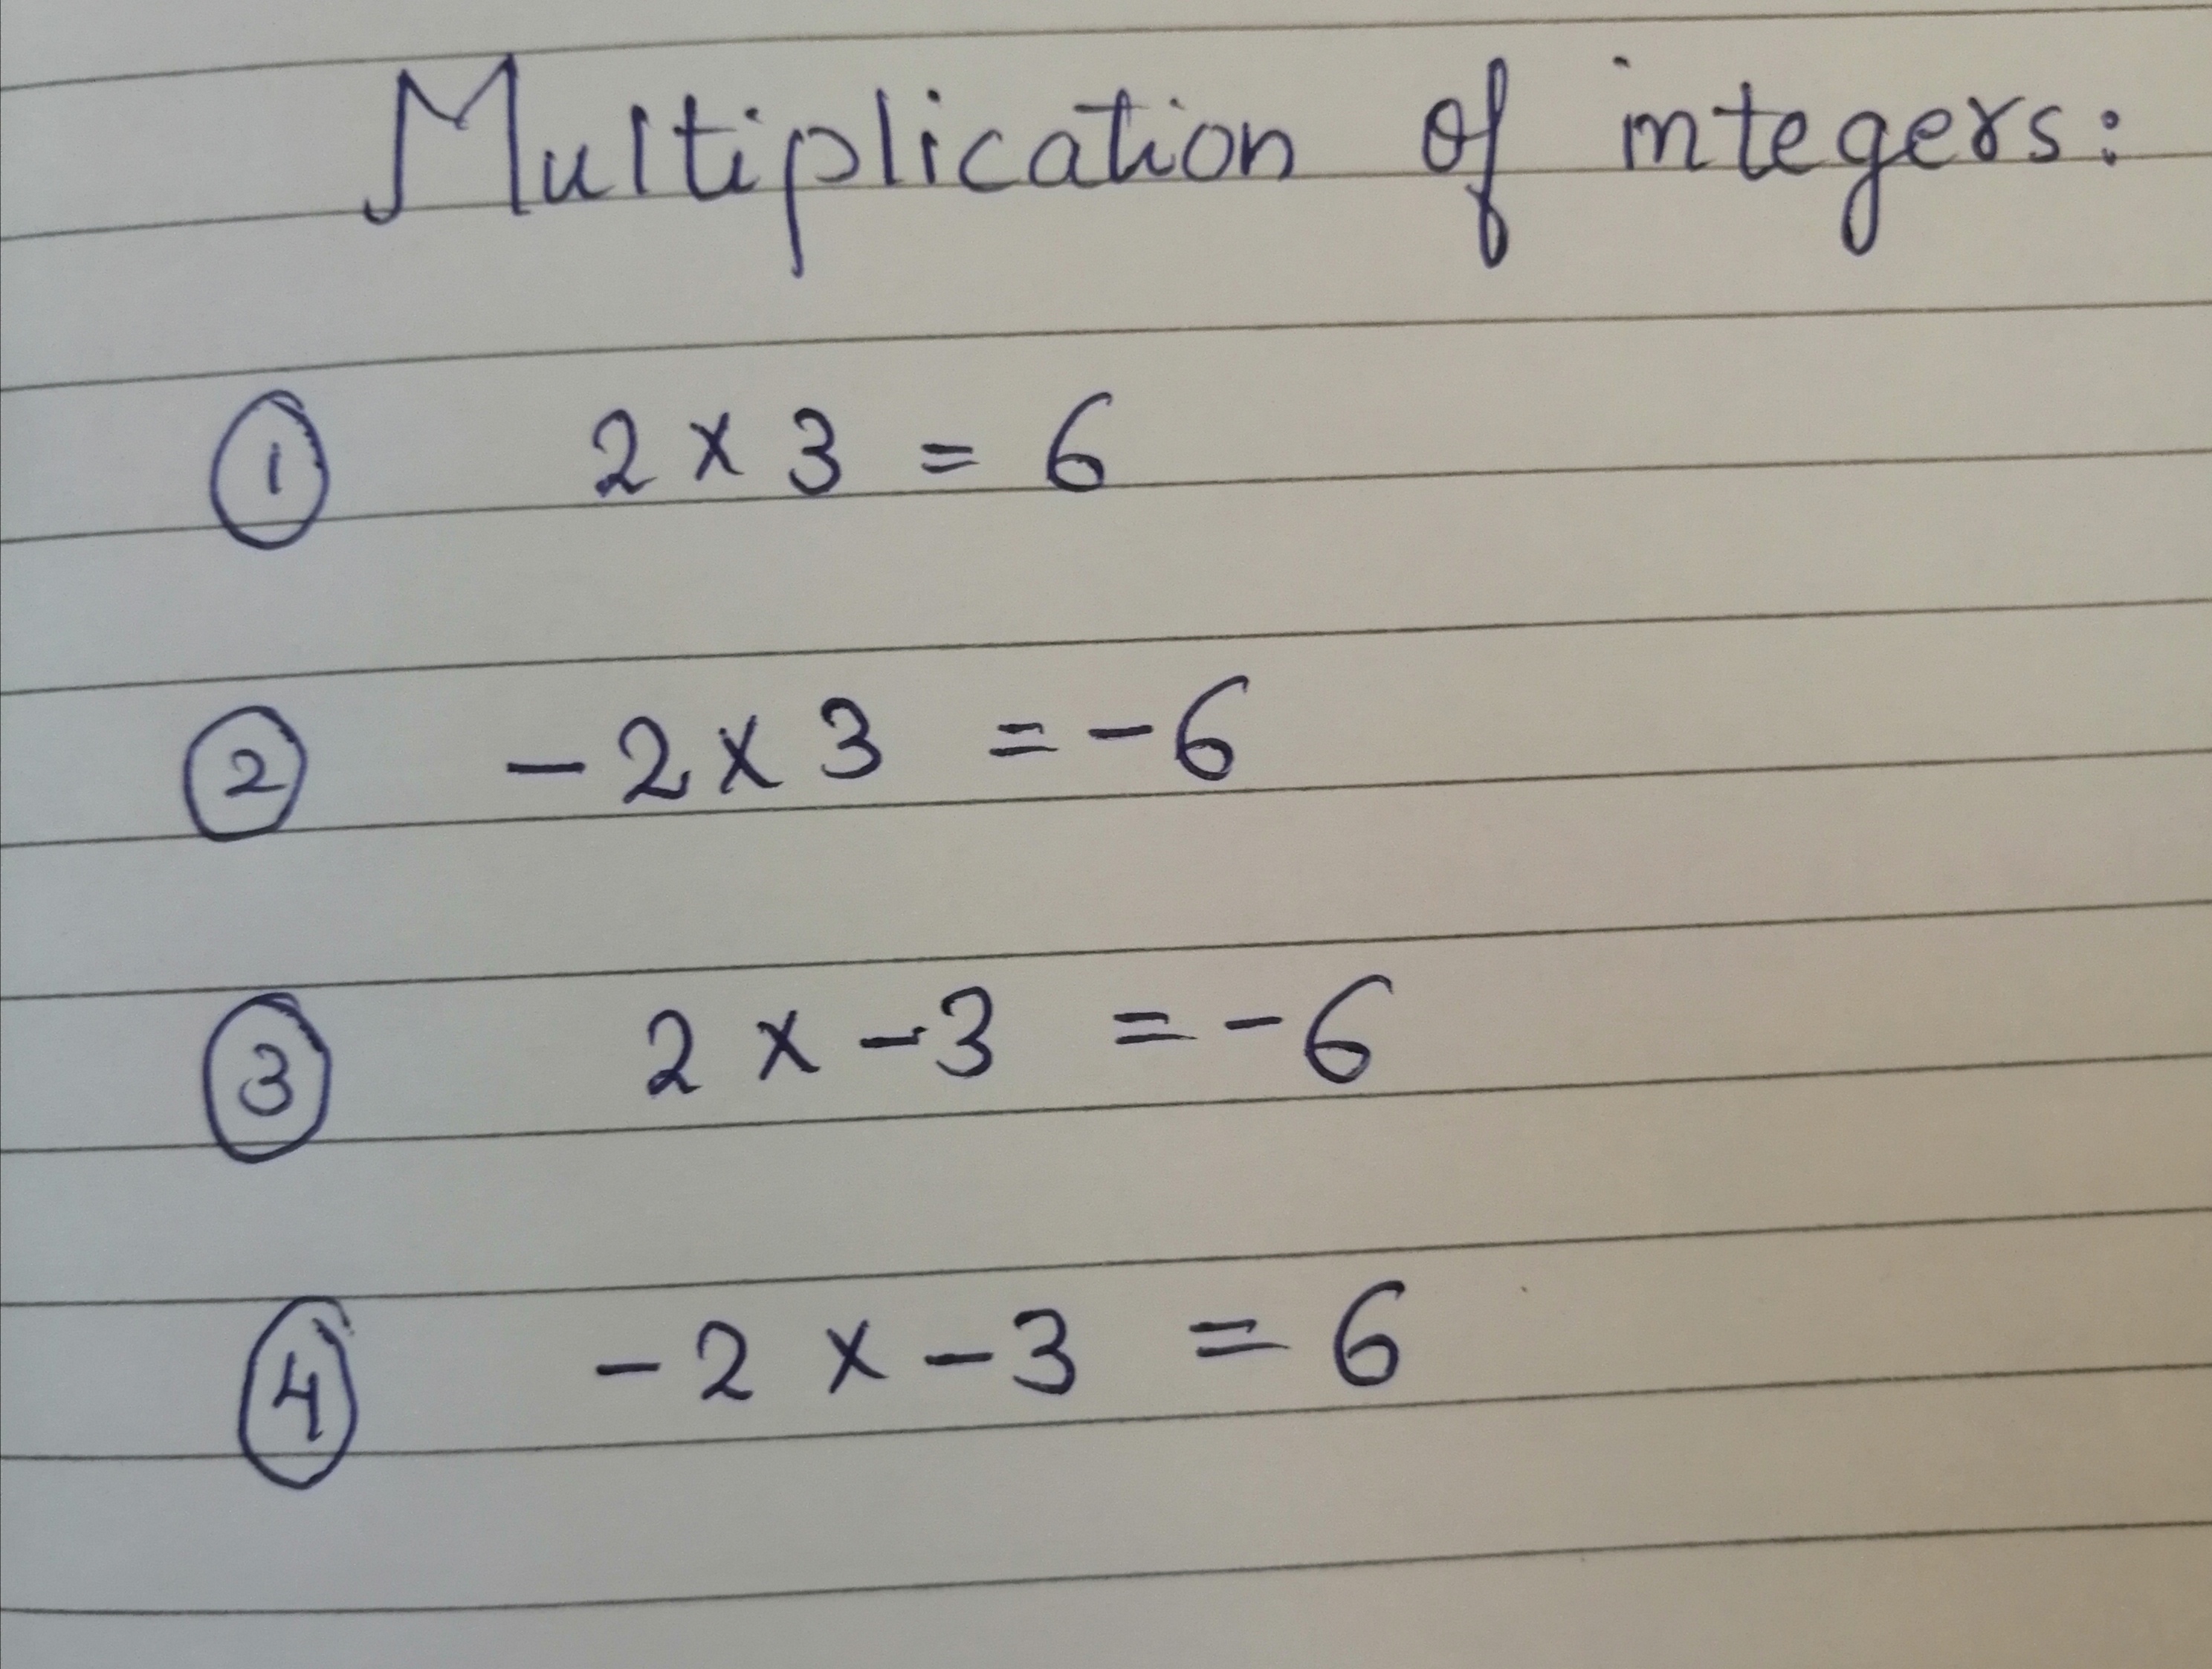 Multiplication of integers:
① 2 × 3 = 6
② -2 × 3 = -6
③ 2 × -3 = -6
④ -2 × -3 = 6